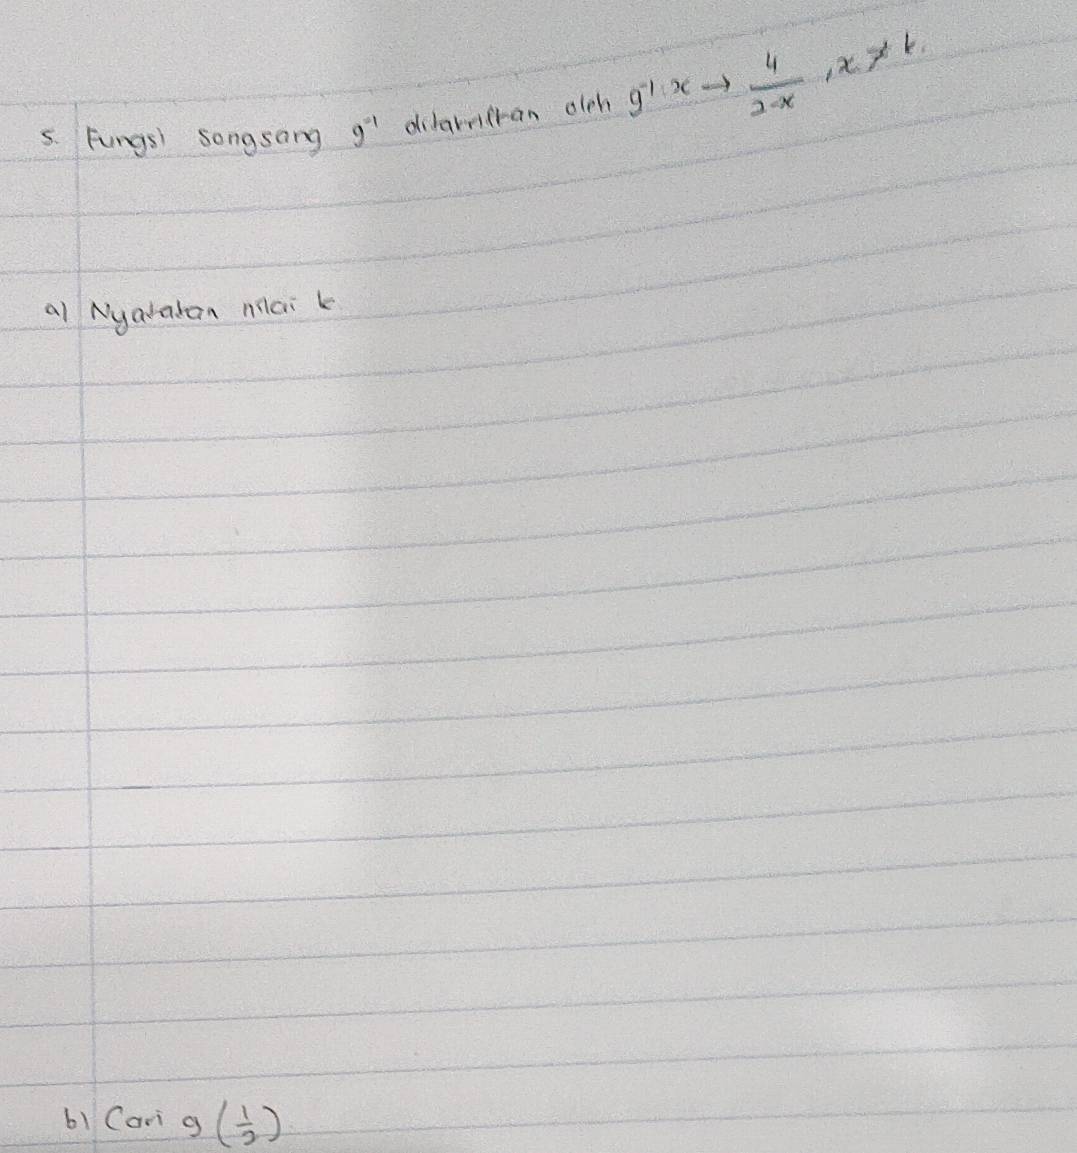 5. Fungsi songsang g⁻¹ ditakrifkan oleh g⁻¹: x → 4/(2-x), x ≠ k.
a) Nyatakan nilai k
b) Cari g (1/2)